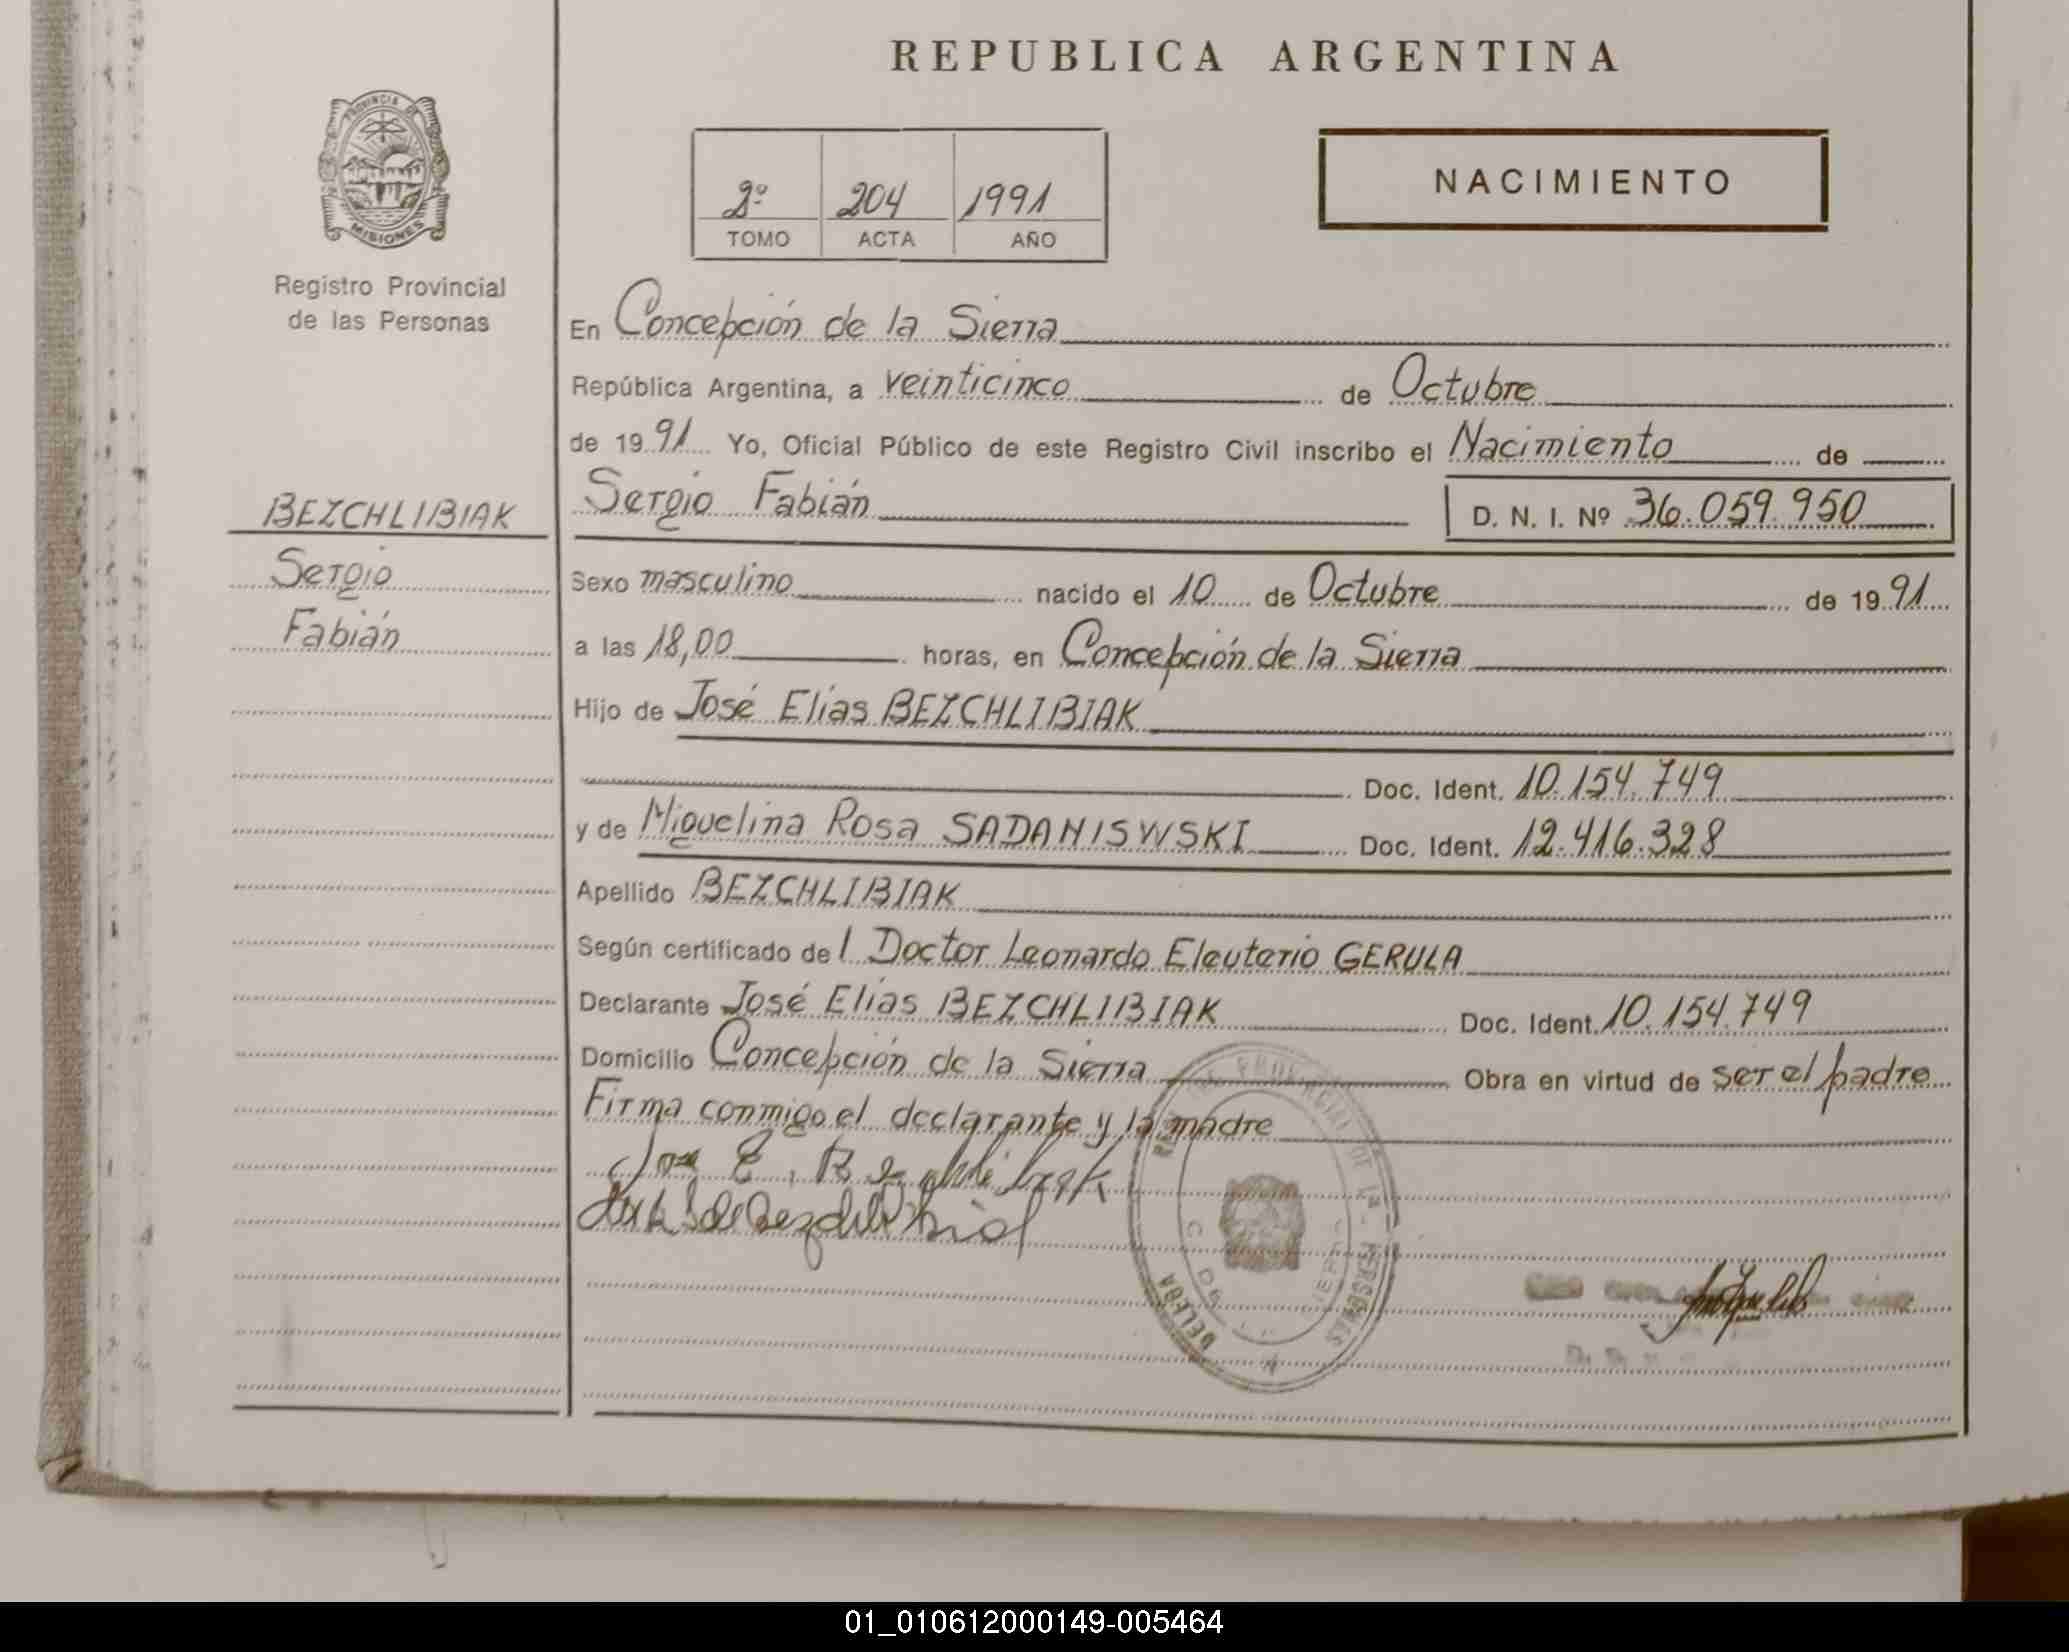 REPUBLICA ARGENTINA
PROVINCIA DE
MISIONES
Registro Provincial
de las Personas
2º 204 1991
TOMO ACTA AÑO
NACIMIENTO
En Concepción de la Sierra
República Argentina, a veinticinco de Octubre
de 1991 Yo, Oficial Público de este Registro Civil inscribo el Nacimiento de
BEZCHLIBIAK
Sergio
Fabián
Sergio Fabián D. N. I. Nº 36.059.950
Sexo masculino nacido el 10 de Octubre de 1991
a las 18,00 horas, en Concepción de la Sierra
Hijo de José Elías BEZCHLIBIAK
Doc. Ident. 10.154.749
y de Miguelina Rosa SADANISWSKI Doc. Ident. 12.416.328
Apellido BEZCHLIBIAK
Según certificado de l Doctor Leonardo Eleuterio GERULA
Declarante José Elías BEZCHLIBIAK Doc. Ident. 10.154.749
Domicilio Concepción de la Sierra Obra en virtud de ser el padre
Firma conmigo el declarante y la madre
01_010612000149-005464